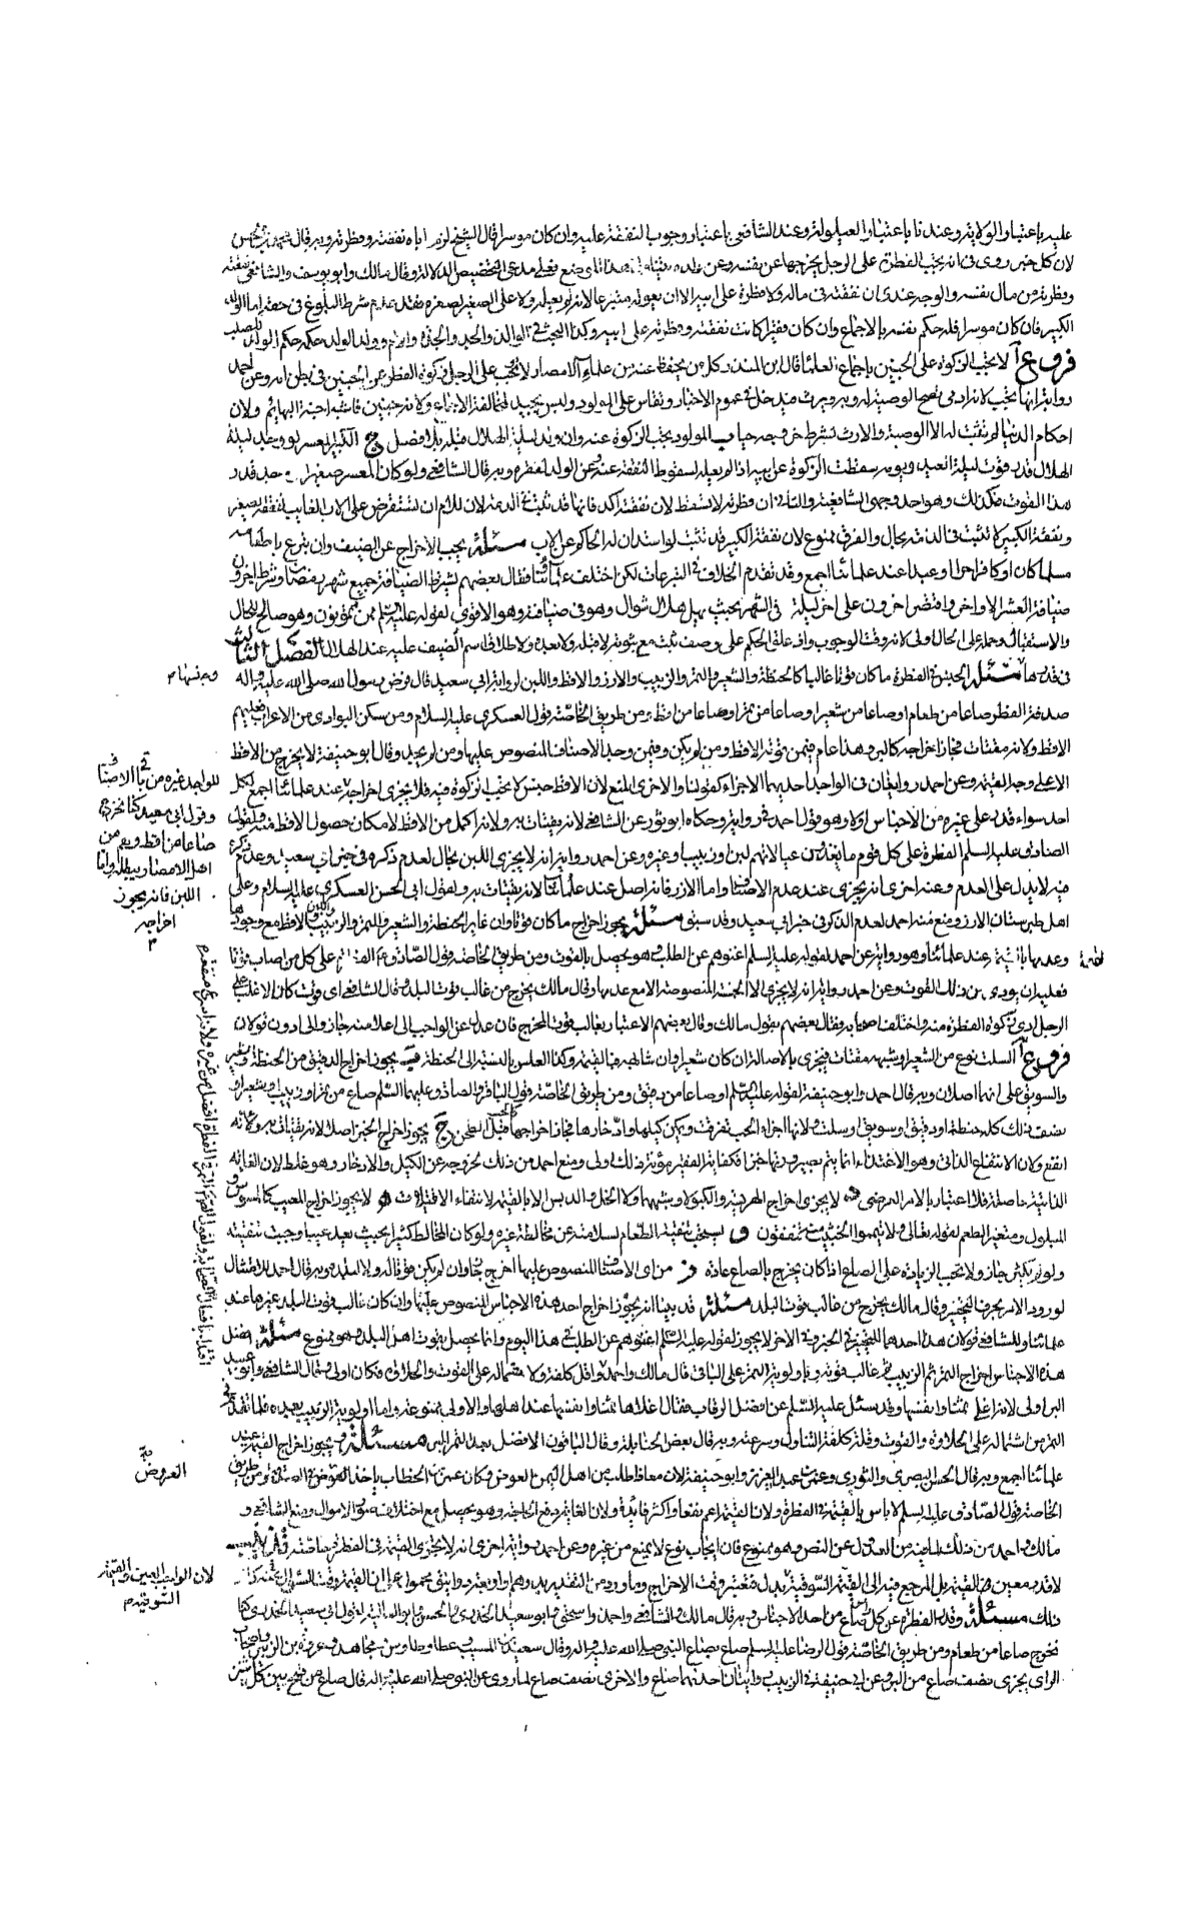 عليه باعتبار الولاية وعندنا باعتبار العيلولة وعند الشافعي باعتبار وجوب النفقة عليه وان كان موسرا قال الشيخ لزم اباه نفقته وفطرته وبه قال
لان كل خبر روى في انه يجب الفطرة على الرجل يخرجها عن نفسه وعن ولده يتناول هذا فاى صنع فعلى مدعى التخصيص الدلالة وقال مالك وابو يوسف والشافعي نفقته
وفطرته من مال نفسه والوجه عندى ان نفقته في ماله ولا فطرة على ابيه الا ان يعوله متبرعا لانه لو يعيله ولا على الصغير لصغره فقد تقدم شرط البلوغ في حقه اما الولد
الكبير فان كان موسرا فله حكم نفسه بالاجماع وان كان فقيرا كانت نفقته وفطرته على ابيه وكذا البحث في الوالد والجد والجدة وان علوا وولد الولد حكمه حكم الولد للصلب
فروع ا لا تجب الزكوة على الجنين باجماع العلما قال ابن المنذر كل من يحفظ عنه من علماء الامصار لا تجب على الرجل زكوة الفطر عن الجنين في بطن امه وعن احمد
رواية انها تجب لانه ادمى تصح الوصية له وبه ويرث فيدخل في عموم الاخبار ويقاس على المولود وليس بجيد لمخالفة الاجماع ولانه جنين فاشبه اجنة البهائم ولان
احكام الدنيا لم تثبت له الا الوصية والارث بشرط خروجه حيا ب المولود تجب الزكوة عنه وان ولد ليلة الهلال قبله بلا فصل ج الكبير المعسر لو وجد ليلة
الهلال قدر قوت ليلة العيد ويومه سقطت الزكوة عن ابيه اذا لم يعله لسقوط النفقة عنه وعن الولد لفقره وبه قال الشافعي ولو كان المعسر صغيرا وجد قدر
هذا القوت فكذلك وهو احد وجهى الشافعية والثاني ان فطرته لا تسقط لان نفقته اكد فانها قد تثبت في الذمة لان للام ان تستقرض على الاب الغايب لنفقة الصغير
ونفقة الكبير لا تثبت في الذمة بحال والفرق ممنوع لان نفقة الكبير قد تثبت لو استدان له الحاكم عن الاب مسئلة يجب الاخراج عن الضيف وان تبرع باطعامه
مسلما كان او كافرا حرا وعبدا عند علمائنا اجمع وقد تقدم الخلاف في التبرعات لكن اختلف علمائنا فقال بعضهم يشترط الضيافة جميع شهر رمضان وشرط اخرون
ضيافة العشر الاواخر واقتصر اخرون على اخر ليلة في الشهر بحيث يهل هلال شوال وهو في ضيافته وهو الاقوى لقوله عليه السلم ممن تمونون وهو صالح للحال
والاستقبال وحمله على الحال اولى لانه وقت الوجوب واذ علق الحكم على وصف ثبت مع ثبوته لا قبله ولا بعده ولا طلاق اسم الضيف عليه عند الهلال الفصل الثالث
في قدرها مسئلة الجنس في الفطرة ما كان قوتا غالبا كالحنطة والشعير والتمر والزبيب والارز والاقط واللبن لرواية ابي سعيد قال فرض رسول الله صلى الله عليه واله
صدقة الفطر صاعا من طعام او صاعا من شعير او صاعا من تمر او صاعا من اقط ومن طريق الخاصة قول العسكري عليه السلام ومن سكن البوادى من الاعراب فعليهم
الاقط ولانه مقتات فجاز اخراجه كالبر وهذا عام فيمن قوته الاقط ومن لم يكن وفيمن وجد الاصناف المنصوص عليها ومن لم يجد وقال ابو حنيفة لا يخرج من الاقط
الا على وجه القيمة وعن احمد روايتان في الواجد احديهما الاجزاء كقولنا والاخرى المنع لان الاقط جنس لا تجب الزكوة فيه فلا يجزى اخراجه عند علمائنا اجمع لكل
احد سواء قدر على غيره من الاجناس اولا وهو قول احمد في رواية وحكاه ابو ثور عن الشافعي لانه يقتات به ولانه اكمل من الاقط لامكان حصول الاقط منه ولقول
الصادق عليه السلم الفطرة على كل قوم ما يغذون عيالاتهم لبن او زبيب او غيره وعن احمد رواية انه لا يجزى اللبن بحال لعدم ذكره في خبر ابي سعيد وعدم ذكره
فيه لا يدل على العدم وعنه اخرى انه يجزى عند عدم الاصناف واما الارز فانه اصل عند علمائنا لانه يقتات به ولقول ابى الحسن العسكري عليه السلام وعلى
اهل طبرستان الارز ومنع منه احمد لعدم الذكر في خبر ابي سعيد وقد سبق مسئلة يجوز اخراج ما كان قوتا وان غاير الحنطة والشعير والتمر والزبيب واللبن والاقط مع وجودها
وعدمها عند علمائنا وهو رواية عن احمد لقوله عليه السلم اغنوهم عن الطلب وهو يحصل بالقوت ومن طريق الخاصة قول الصادق على كل من اصاب قوتا
فعليه ان يودى من ذلك القوت وعن احمد رواية انه لا يجزى الا الخمسة المنصوصة الا مع عدمها وقال مالك يخرج من غالب قوت البلد وقال الشافعي اى قوت كان الاغلب على
الرجل ادى زكوة الفطرة منه واختلف اصحابه فقال بعضهم بقول مالك وقال بعضهم الاعتبار بغالب قوت المخرج فان عدل عن الواجب الى اعلا منه جاز والى ادون قولان
فروع ا السلت نوع من الشعير ويشبهه مقتات فيجزى بالاصالة ان كان شعيرا وان شابهه فبالقيمة وكذا العلس بالنسبة الى الحنطة ب يجوز اخراج الدقيق من الحنطة وشعير
والسويق على انهما اصلان وبه قال احمد وابو حنيفة لقوله عليه السلم او صاعا من دقيق ومن طريق الخاصة قول الباقر والصادق عليهما السلم صاع من تمر او زبيب او شعير او
نصف ذلك كله حنطة او دقيق او سويق او سلت ولانها اجزاء الحب تفرقت ويمكن كيلها وادخارها فجاز اخراجها كما قبل الطحن ج يجوز اخراج الخبز اصلا لانه يقتات به ولانه
انفع ولان الانتفاع الذاتي وهو الاغتذاء انما يتم بصيرورتها خبزا فكفاية الفقير مؤنة ذلك اولى ومنع احمد من ذلك لخروجه عن الكيل والادخار وهو غلط لان الغاية
الذاتية حاصلة فلا اعتبار بالامر العرضى د لا يجزى اخراج الهريسة والكبولا وشبههما ولا الخل والدبس الا بالقيمة لانتفاء الاقتيات ه لا يجوز اخراج المعيب كالمسوس و
المبلول ومتغير الطعم لقوله تعالى ولا تيمموا الخبيث منه تنفقون و يستحب تنقية الطعام لسلامته عن مخالطة غيره ولو كان المخالط كثيرا بحيث يعد عيبا وجبت تنقيته
ولو لم يكثر جاز ولا تجب الزيادة على الصاع اذا كان يخرج بالصاع عادة ز من اى الاصناف المنصوص عليها اخرج جاز وان لم يكن قوته ولا لبلده وبه قال احمد للامتثال
لورود الامر بحرف التخيير وقال مالك يخرج من غالب قوت البلد مسئلة قد بينا انه يجوز اخراج احد هذه الاجناس المنصوص عليها وان كان غالب قوت البلد غيرها عند
علمائنا وللشافعي قولان هذا احدهما للتخيير في الخبر وفي الاخر لا يجوز لقوله عليه السلم اغنوهم عن الطلب في هذا اليوم وانما يحصل بقوت اهل البلد وهو ممنوع مسئلة افضل
هذه الاجناس اخراج التمر ثم الزبيب ثم غالب قوته وباولوية التمر على الباقى قال مالك واحمد لانه اقل كلفة ولاشتماله على القوت والحلاوة فكان اولى وقال الشافعي وابو عبيد
البر اولى لانه اغلى ثمنا وانفسها وقد سئل عليه السلم عن افضل الرقاب فقال اغلاها ثمنا وانفسها عند اهلها والاولى ممنوعة واما اولوية الزبيب بعده فلما تقدم في
التمر من اشتماله على الحلاوة والقوت وقلة كلفة التناول وسرعته وبه قال بعض الحنابلة وقال الباقون الافضل بعد التمر البر مسئلة ويجوز اخراج القيمة عند
علمائنا اجمع وبه قال الحسن البصرى والثورى وعمر بن عبد العزيز وابو حنيفة لان معاذا طلب من اهل اليمن العوض وكان عمر بن الخطاب ياخذ العروض في الصدقة ومن طريق
الخاصة قول الصادق عليه السلم لا باس بالقيمة في الفطرة ولان القيمة اعم نفعا واكثر فائدة ولان الغاية دفع الحاجة وهو يحصل مع اختلاف صور الاموال ومنع الشافعي و
مالك واحمد من ذلك لما فيه من العدول عن النص وهو ممنوع فان ايجاب نوع لا يمنع من غيره وعن احمد رواية اخرى انه لا يجزى القيمة في الفطرة خاصة
لا قدر معين في القيمة بل المرجع فيه الى القيمة السوقية بدل فتعتبر وقت الاخراج وما ورد من التقدير بدرهم او اربعة دوانيق محمول على ان القيمة وقت السؤال
ذلك مسئلة وقدر الفطرة عن كل راس صاع من احد الاجناس وبه قال مالك والشافعي واحمد واسحق وابو سعيد الخدرى والحسن وابو العالية لقول ابى سعيد الخدرى كنا
نخرج صاعا من طعام ومن طريق الخاصة قول الرضا عليه السلم صاع بصاع النبي صلى الله عليه واله وقال سعيد بن المسيب وعطا وطاوس ومجاهد وعروة بن الزبير واصحاب
الراى يجزى نصف صاع من البر وعن ابى حنيفة في الزبيب روايتان احديهما صاع والاخرى نصف صاع لما روى عن النبي صلى الله عليه واله قال صاع من قمح بين كل اثنين
للواجد غيره من باقى الاصناف
وقول ابى سعيد كنا نخرج
صاعا من اقط ويعم من
اهل الامصار يبطله واما
اللبن فانه يجوز
اخراجه
العروض
لان الواجب العين والقيمة
السوقية